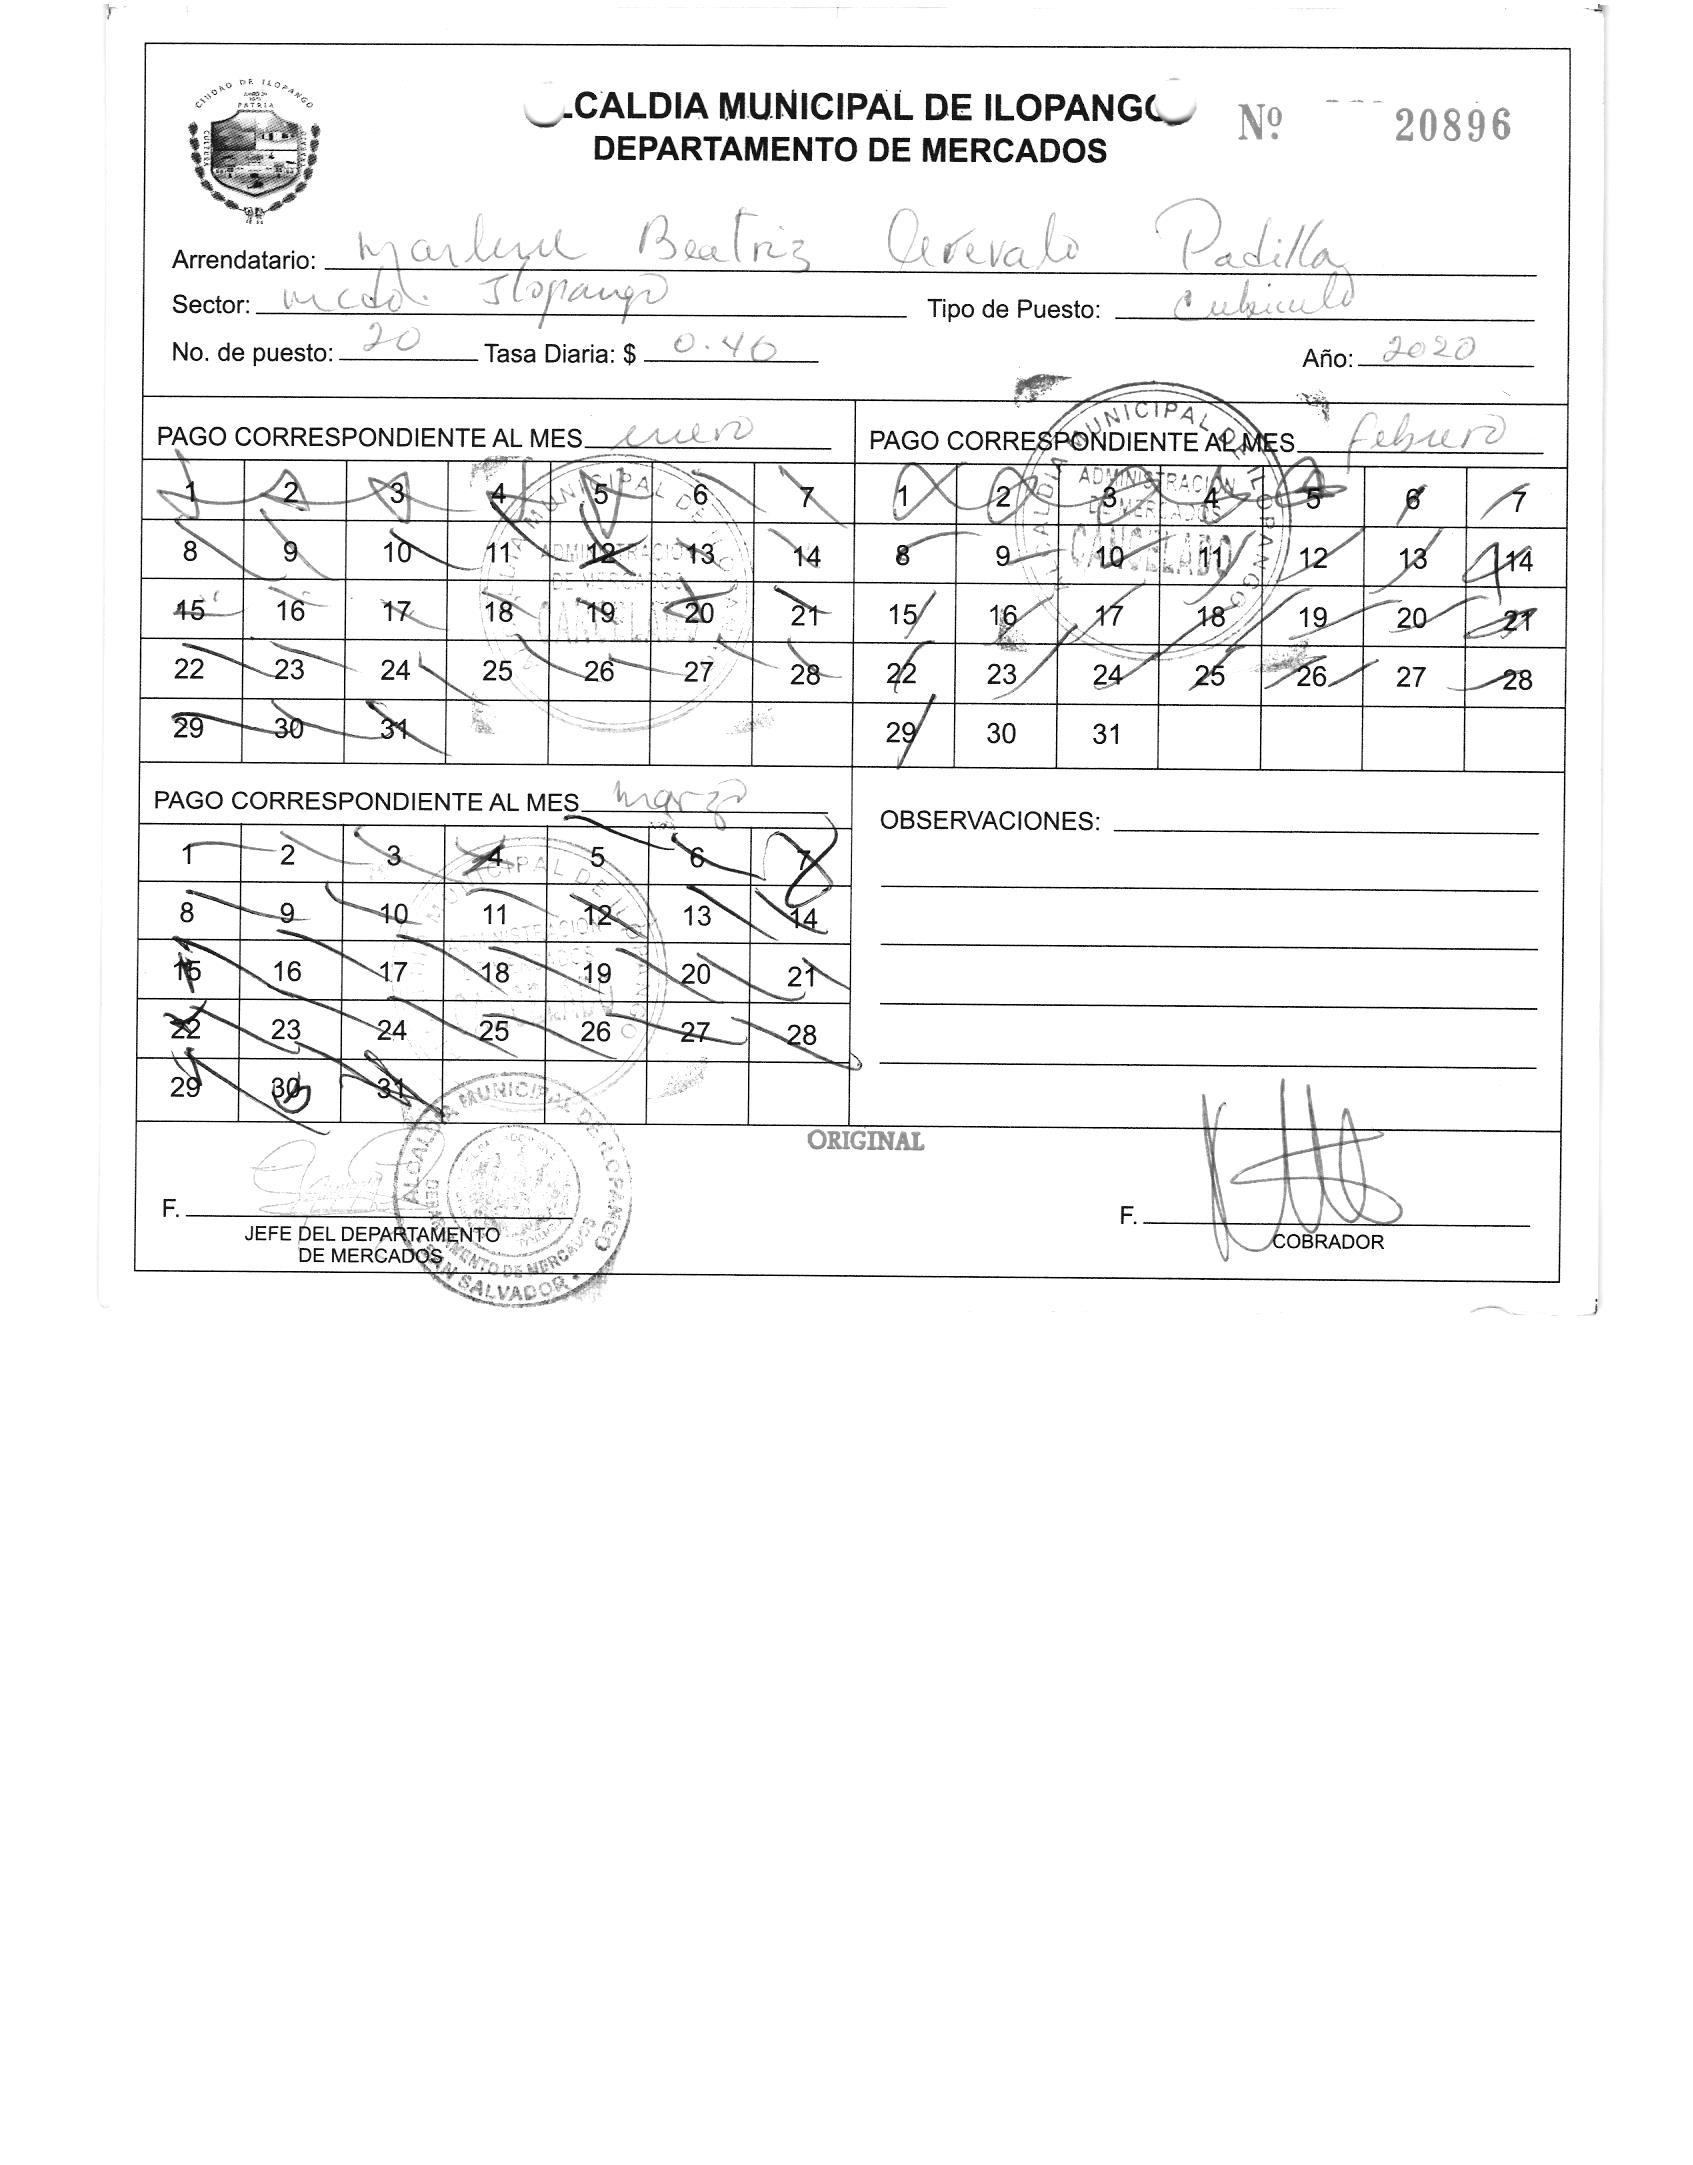 CIUDAD DE ILOPANGO
PATRIA
CULTURA
TRABAJO
.CALDIA MUNICIPAL DE ILOPANGO
DEPARTAMENTO DE MERCADOS
Nº 20896
Arrendatario: Marlene Beatriz Arevalo Padilla
Sector: mcdo. Ilopango Tipo de Puesto: Cubiculo
No. de puesto: 20 Tasa Diaria: $ 0.46 Año: 2020
PAGO CORRESPONDIENTE AL MES enero
1 2 3 4 5 6 7
8 9 10 11 12 13 14
15 16 17 18 19 20 21
22 23 24 25 26 27 28
29 30 31
MUNICIPAL DE ILOPANGO
ADMINISTRACION
DE MERCADOS
CANCELADO
PAGO CORRESPONDIENTE AL MES febrero
1 2 3 4 5 6 7
8 9 10 11 12 13 14
15 16 17 18 19 20 21
22 23 24 25 26 27 28
29 30 31
ALCALDIA MUNICIPAL DE ILOPANGO
ADMINISTRACION
DE MERCADOS
CANCELADO
PAGO CORRESPONDIENTE AL MES marzo
1 2 3 4 5 6 7
8 9 10 11 12 13 14
15 16 17 18 19 20 21
22 23 24 25 26 27 28
29 30 31
MUNICIPAL DE ILOPANGO
ADMINISTRACION
OBSERVACIONES:
ORIGINAL
F.
JEFE DEL DEPARTAMENTO
DE MERCADOS
ALCALDIA MUNICIPAL DE ILOPANGO
DEPARTAMENTO DE MERCADOS
SAN SALVADOR
F.
COBRADOR